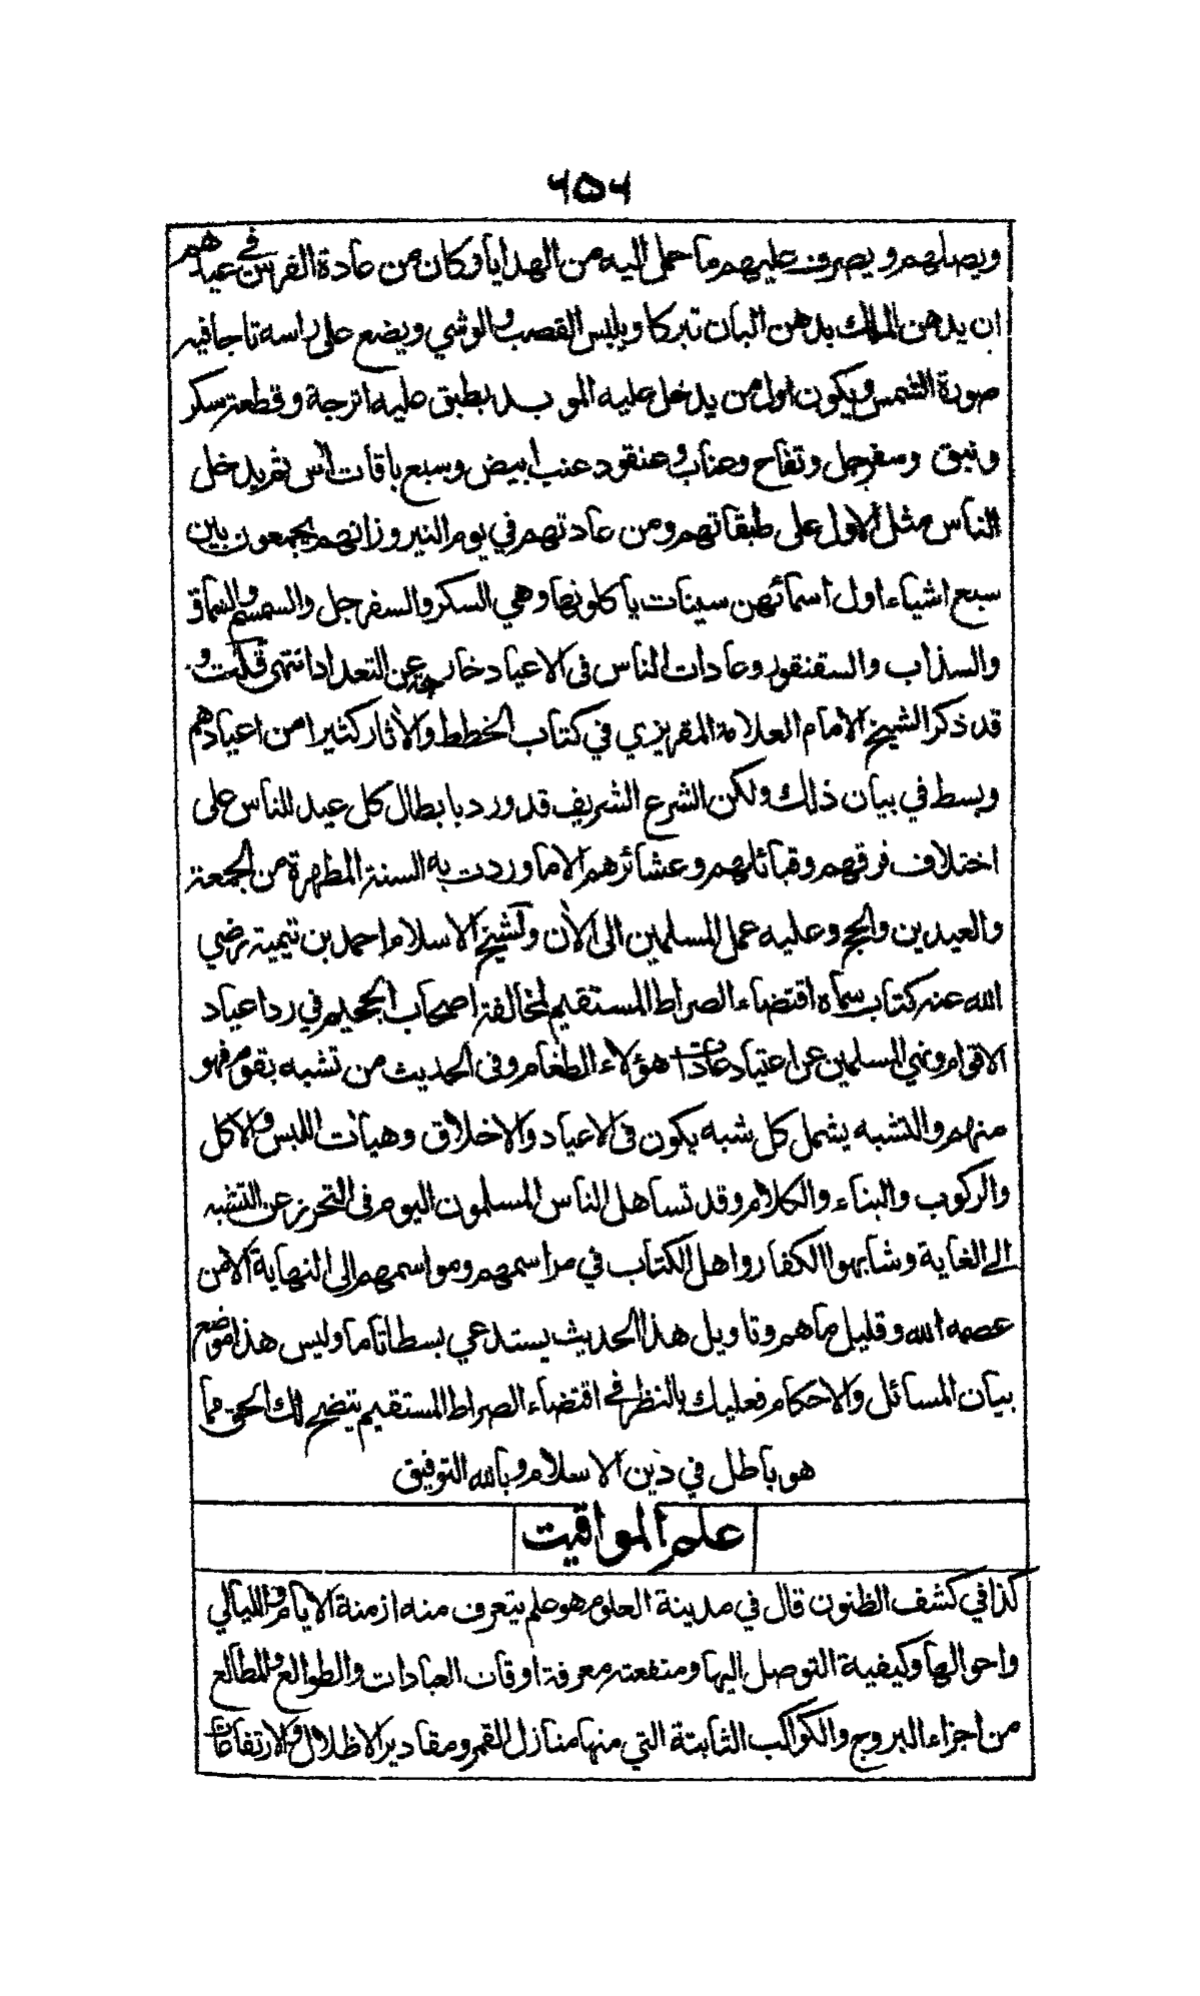 ٦٥٦
ويصلهم ويصرف عليهم ما حمل اليه من الهدايا وكان من عادة الفرس في عيدهم
ان يدهن الملك بدهن البان تبركا ويلبس القصب والوشي ويضع على راسه تاجا فيه
صورة الشمس ويكون اول من يدخل عليه الموبد بطبق عليه اترجة وقطعة سكر
ونبق وسفرجل وتفاح وعناب وعنقود عنب ابيض وسبع باقات اس ثم يدخل
الناس مثل الاول على طبقاتهم ومن عادتهم في يوم النيروز انهم يجمعون بين
سبع اشياء اول اسمائهن سينات ياكلونها وهي السكر والسفرجل والسمسم والسماق
والسذاب والسقنقور وعادات الناس فى الاعياد خارجة عن التعداد انتهى قلت و
قد ذكر الشيخ الامام العلامة المقريزي في كتاب الخطط والاثار كثيرا من اعيادهم
وبسط في بيان ذلك ولكن الشرع الشريف قد ورد بابطال كل عيد للناس على
اختلاف فرقهم وقبائلهم وعشائرهم الا ما وردت به السنة المطهرة من الجمعة
والعيدين والحج وعليه عمل المسلمين الى الان ولشيخ الاسلام احمد بن تيمية رضي
الله عنه كتاب سماه اقتضاء الصراط المستقيم لمخالفة اصحاب الجحيم في رد اعياد
الاقوام ونهي المسلمين عن اعتياد عادات هؤلاء الطغام وفى الحديث من تشبه بقوم فهو
منهم والتشبه يشمل كل شبه يكون فى الاعياد والاخلاق وهيات اللبس والاكل
والركوب والبناء والكلام وقد تساهل الناس المسلمون اليوم فى التحرز عن التشبه
الى الغاية وشابهوا الكفار واهل الكتاب في مراسمهم ومواسمهم الى النهاية الا من
عصمه الله وقليل ما هم وتاويل هذا الحديث يستدعي بسطا تاما وليس هذا موضع
بيان المسائل والاحكام فعليك بالنظر في اقتضاء الصراط المستقيم يتضح لك الحق مما
هو باطل في دين الاسلام وبالله التوفيق
علم المواقيت
كذا في كشف الظنون قال في مدينة العلوم هو علم يتعرف منه ازمنة الايام والليالي
واحوالها وكيفية التوصل اليها ومنفعته معرفة اوقات العبادات والطوالع والمطالع
من اجزاء البروج والكواكب الثابتة التي منها منازل القمر ومقادير الاظلال والارتفاعات